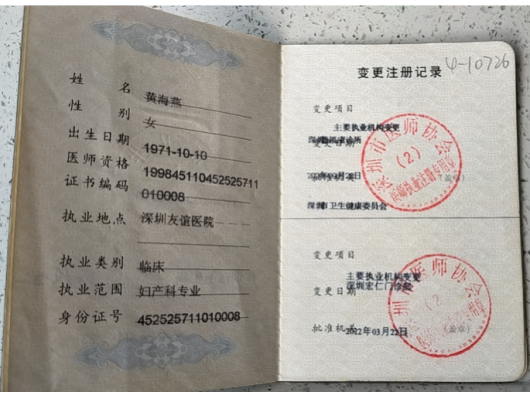 姓 名 黄海燕
性 别 女
出生日期 1971-10-10
医师资格 199845110452525711
证书编码 010008
执业地点 深圳友谊医院
执业类别 临床
执业范围 妇产科专业
身份证号 452525711010008
变更注册记录
4-10726
变更项目
主要执业机构变更
深圳市卫生健康委员会
深圳市医师协会
(2)
变更项目
主要执业机构变更
深圳宏仁门诊部
变更日期
批准机关
2022年03月22日
(盖章)
圳市医师协会